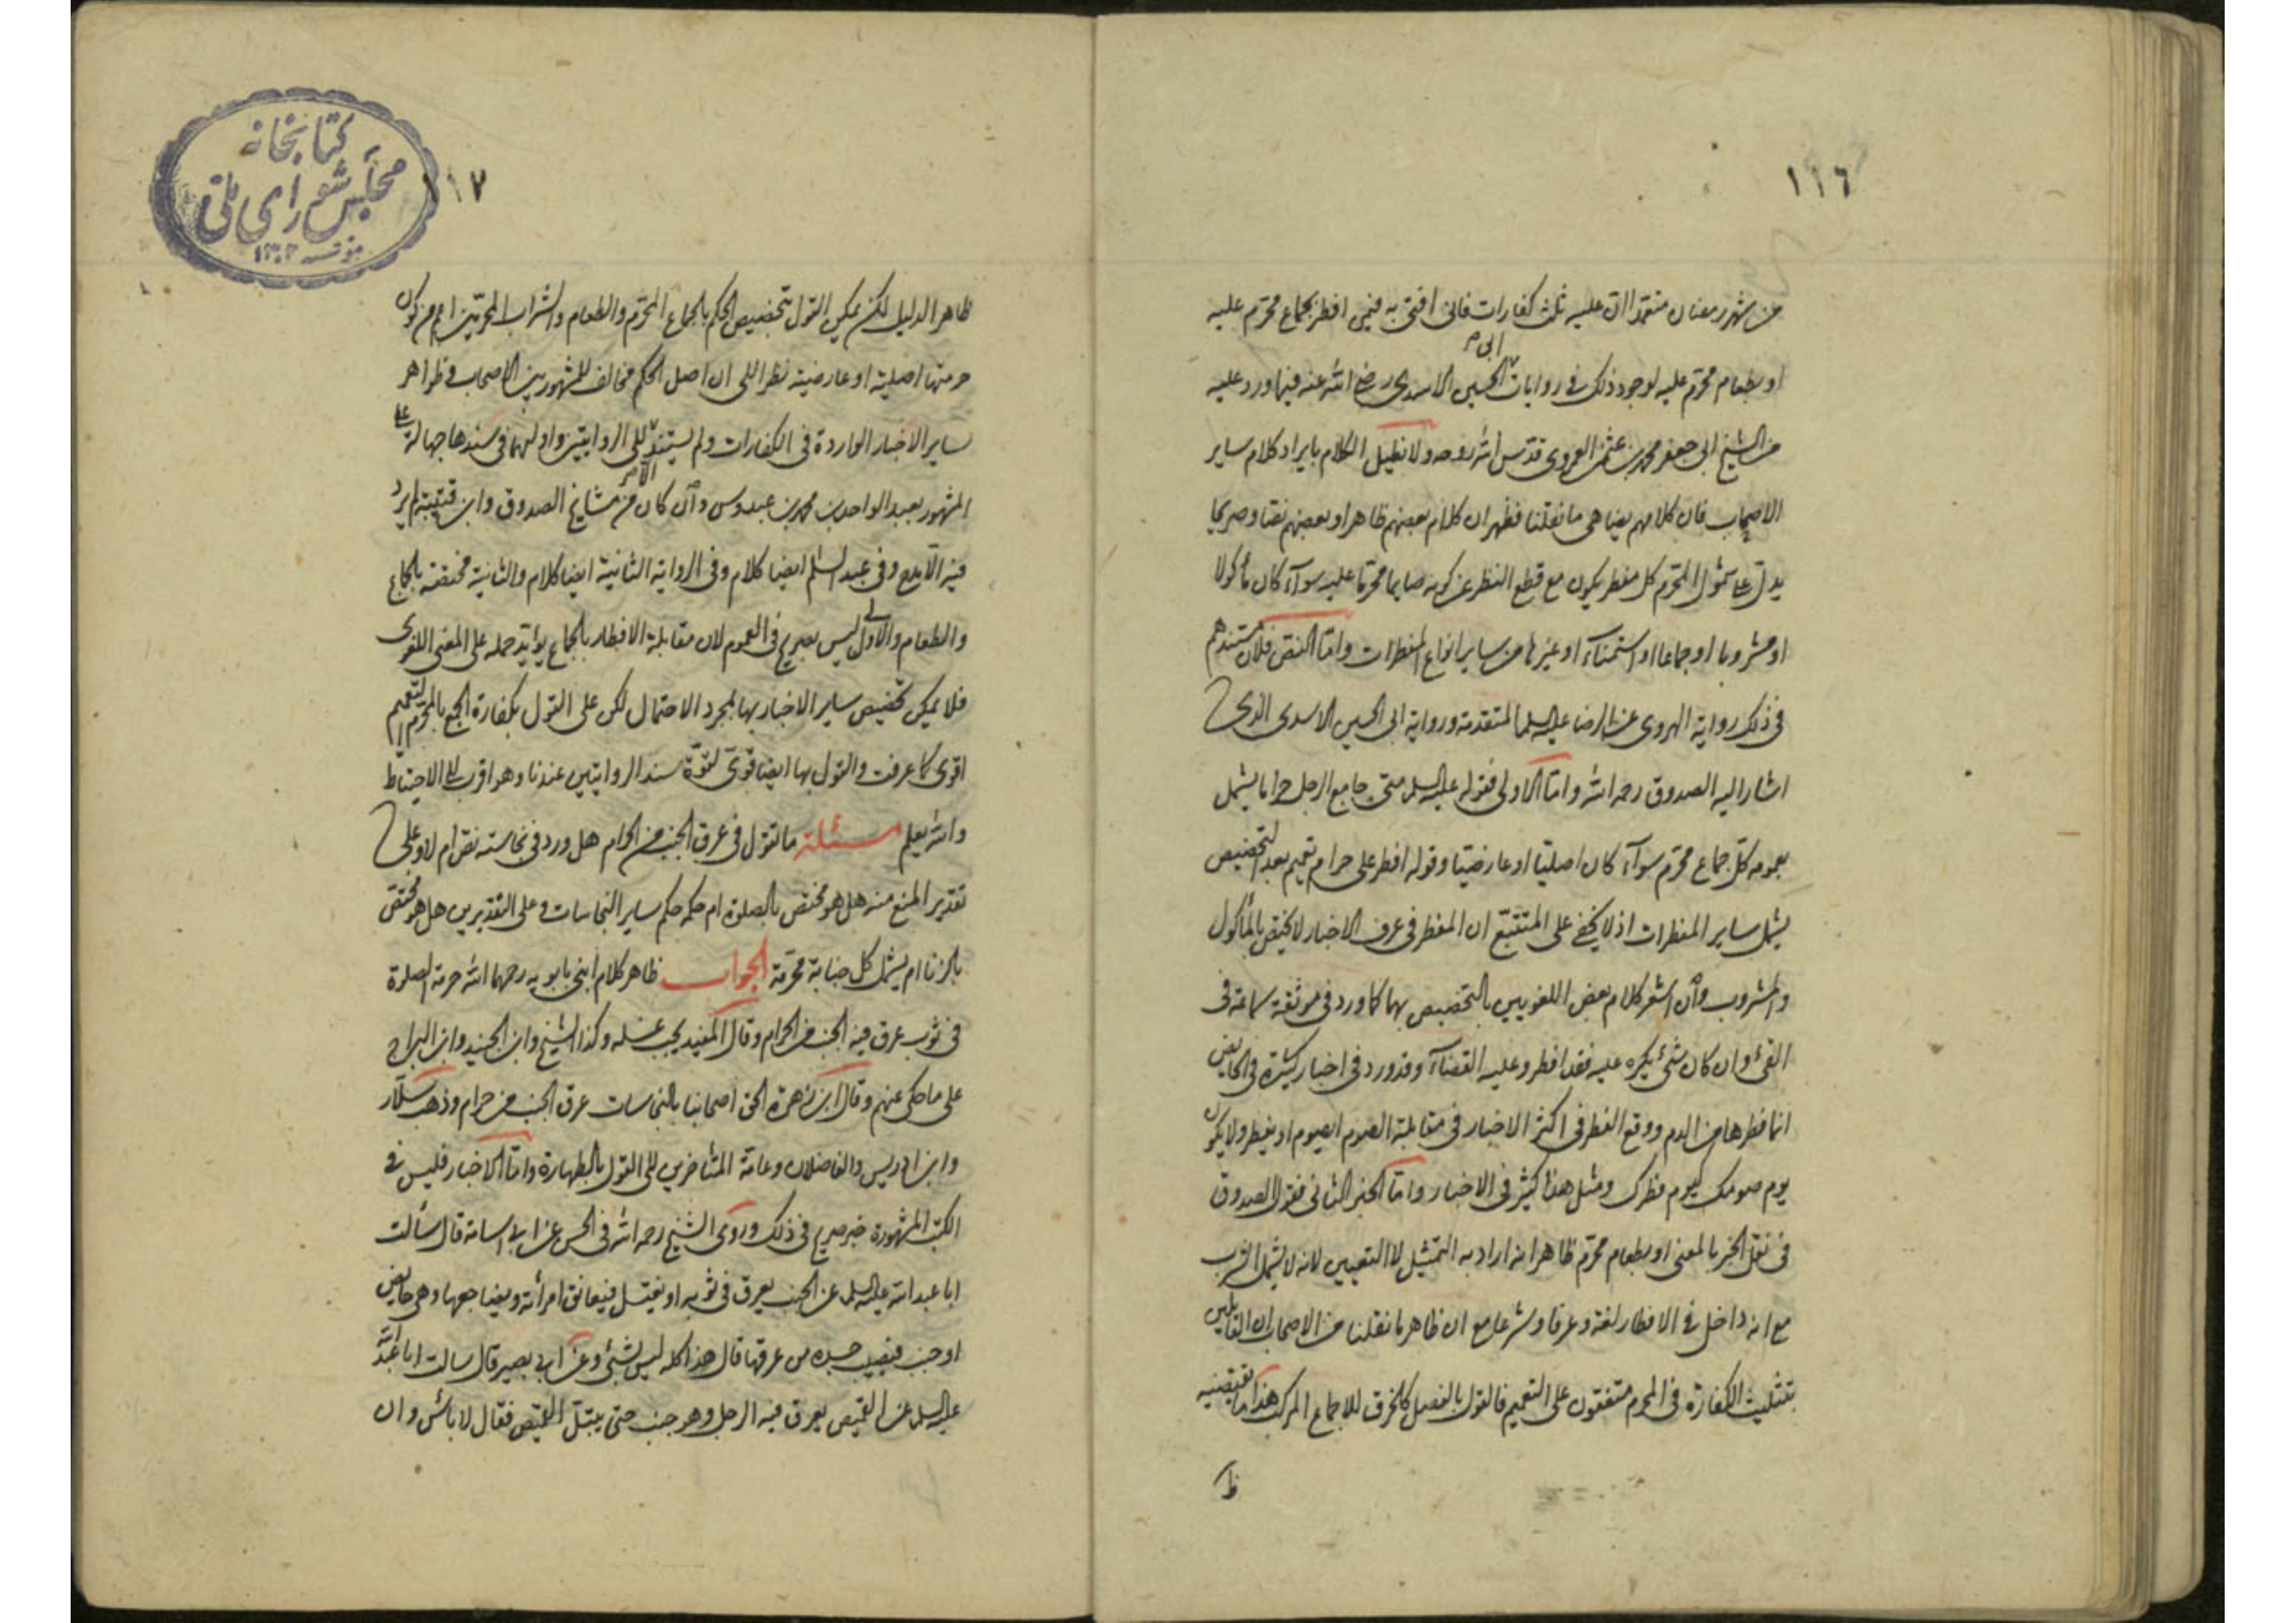 ١١٦
من شهر رمضان متعمدا ان عليه ثلث كفارات فانى افتى به فيمن افطر بجماع محرم عليه
او بطعام محرم عليه لوجود ذلك فى روايات ابى الحسين الاسدى رضى الله عنه فيما ورد عليه
من الشيخ ابى جعفر محمد بن عثمن العمروى قدس الله روحه ولا نطيل الكلام بايراد كلام ساير
الاصحاب فان كلامهم يضاهى ما نقلنا فظهر ان كلام بعضهم ظاهرا وبعضهم نصا وصريحا
يدل على شمول المحرم كل مفطر يكون مع قطع النظر عن كونه صايما محرما عليه سوآء كان مأكولا
او مشروبا او جماعا او استمنآء او غيرها من ساير انواع المفطرات واما النص فلان مستندهم
فى ذلك رواية الهروى عن الرضا عليه السلم المتقدمة ورواية ابى الحسين الاسدى الذى
اشار اليه الصدوق رحمه الله واما الاولى فقوله عليه السلم متى جامع الرجل حراما يشمل
بعمومه كل جماع محرم سوآء كان اصليا او عارضيا وقوله افطر على حرام تعميم بعد التخصيص
يشمل ساير المفطرات اذ لا يخفى على المتتبع ان المفطر فى عرف الاخبار لا يختص بالمأكول
والمشروب وان اشعر كلام بعض اللغويين بالتخصيص بهما كما ورد فى موثقة سماعة فى
القئ وان كان شئ يكره عليه فقد افطر وعليه القضآء وقد ورد فى اخبار كثيرة فى الحايض
انما فطرها من الدم ووقع الفطر فى اكثر الاخبار فى مقابلة الصوم ايصوم او يفطر ولا يكون
يوم صومك كيوم فطرك ومثل هذا كثير فى الاخبار واما الخبر الثانى فقول الصدوق
فى نقل الخبر بالمعنى او بطعام محرم ظاهرا انه اراد به التمثيل لا التعيين لانه لا يشمل الشرب
مع انه داخل فى الافطار لغة وعرفا وشرعا مع ان ظاهر ما نقلنا من الاصحاب ان القايلين
بتثليث الكفارة فى المحرم متفقون على التعميم فالقول بالفصل كالخرق للاجماع المركب هذا ما يقتضيه
ظا
كتابخانه
مجلس شوراى ملى
١١٧
ظاهر الدليل لكن يمكن القول بتخصيص الحكم بالجماع المحرم والطعام والشراب المحرمين اعم من كون
حرمتها اصلية او عارضية نظرا الى ان اصل الحكم مخالف للمشهور بين الاصحاب وظواهر
ساير الاخبار الواردة فى الكفارات ولم يستند الا الى الروايتين واولهما فى سندها جهالة على
المشهور بعبد الواحد بن محمد بن عبدوس وان كان من مشايخ الصدوق وابن قتيبة لم يرد
فيه الا مدح وفى عبد السلم ايضا كلام وفى الرواية الثانية ايضا كلام والثانية مختصة بالجماع
والطعام والاولى ليس بصريح فى العموم لان مقابلة الافطار بالجماع يؤيد حمله على المعنى اللغوى
فلا يمكن تخصيص ساير الاخبار بها بمجرد الاحتمال لكن على القول بكفارة الجمع بالمحرم التعميم
اقوى كما عرفت والقول بها ايضا قوى لقوة سند الروايتين عندنا وهو اقرب الى الاحتياط
والله يعلم مسئلة ما تقول فى عرق الجنب من الحرام هل ورد فى نجاسته نص ام لا وعلى
تقدير المنع منه هل هو مختص بالصلوة ام حكمه حكم ساير النجاسات وعلى التقديرين هل هو مختص
بالزنا ام يشمل كل جنابة محرمة الجواب ظاهر كلام ابنى بابويه رحمهما الله حرمة الصلوة
فى ثوب عرق فيه الجنب من الحرام وقال المفيد يجب غسله وكذا الشيخ وابن الجنيد وابن البراج
على ما حكى عنهم وقال ابن زهرة الحق اصحابنا بالنجاسات عرق الجنب من حرام وذهب سلار
وابن ادريس والفاضلان وعامة المتأخرين الى القول بالطهارة واما الاخبار فليس فى
الكتب المشهورة خبر صريح فى ذلك وروى الشيخ رحمه الله فى الحسن عن ابى اسامة قال سألت
ابا عبد الله عليه السلم عن الجنب يعرق فى ثوبه او يغتسل فيعانق امرأته ويضاجعها وهى حايض
او جنب فيصيب جسده من عرقها قال هذا كله ليس بشئ وعن ابى بصير قال سالت ابا عبد الله
عليه السلم عن القميص يعرق فيه الرجل وهو جنب حتى يبتل القميص فقال لا بأس وان